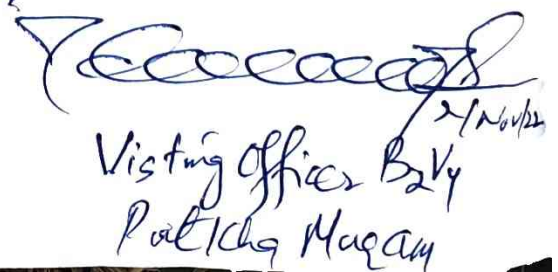 2/Nov/22
Visting Officer B2V4
Patkha Muqam